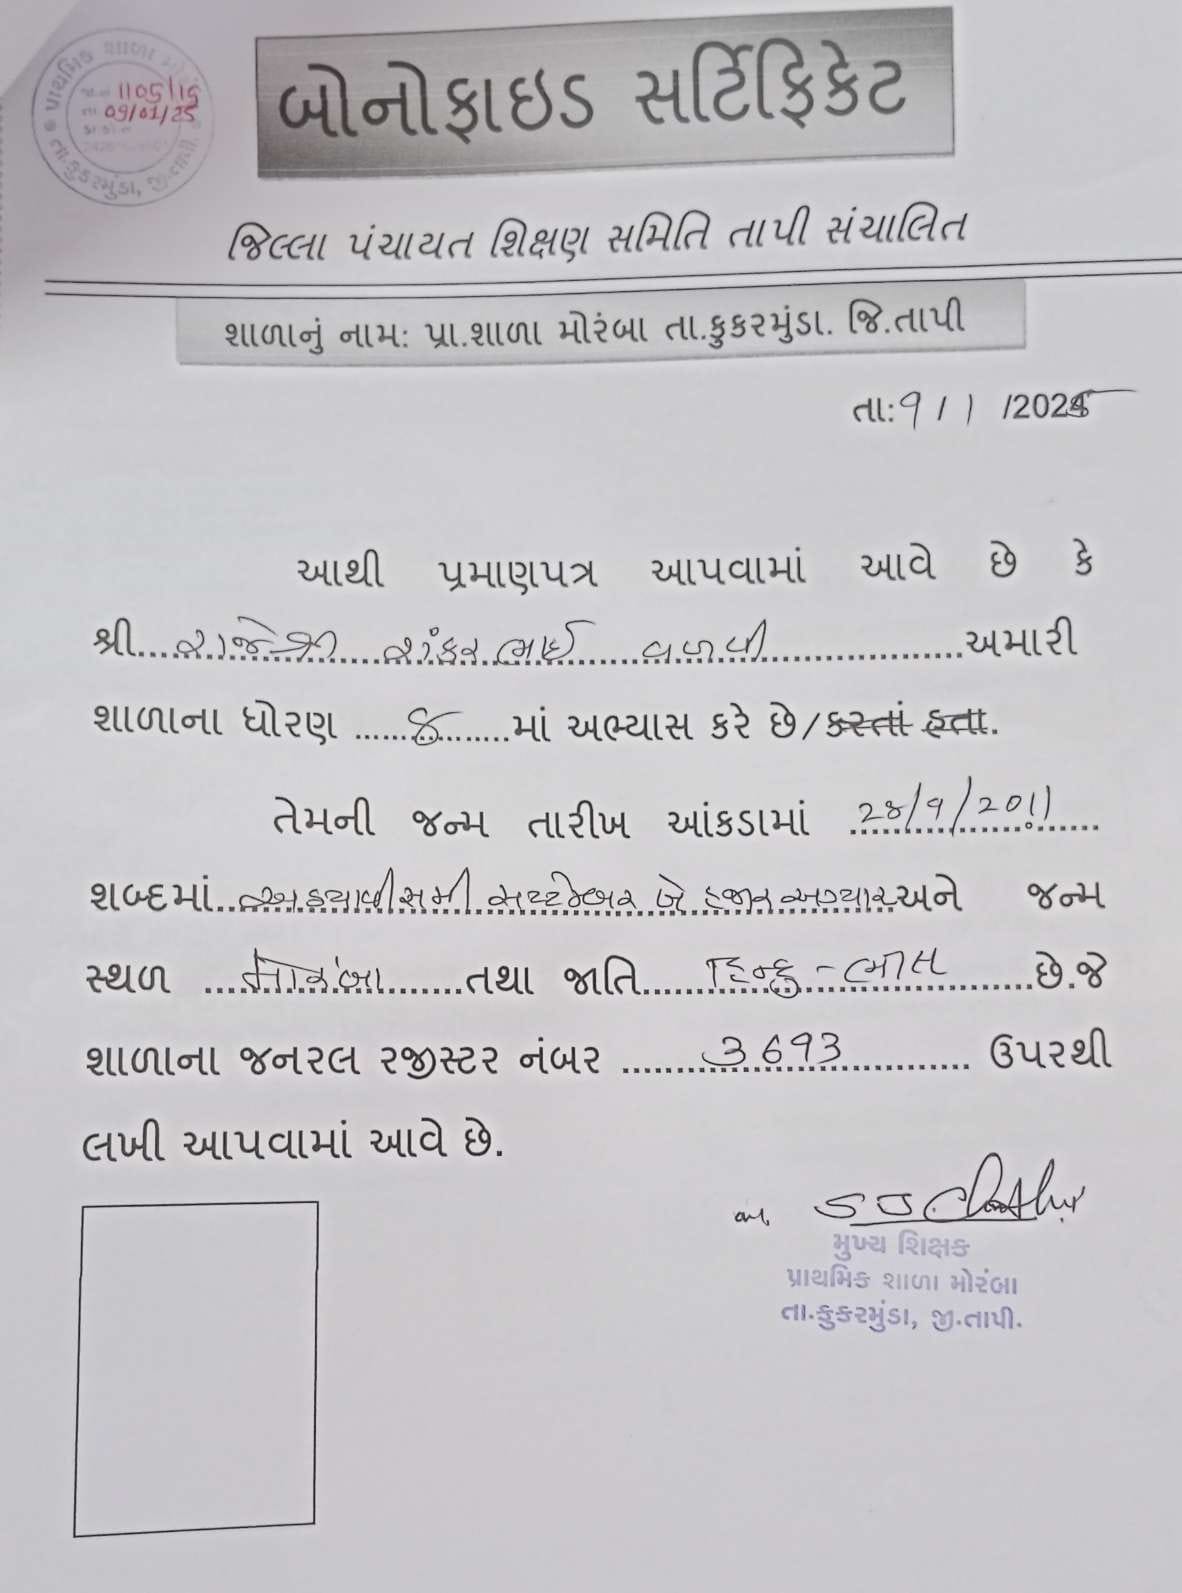 પ્રાથમિક શાળા
1105/15
તા 09/01/25
તા.કુકરમુંડા, જી.તાપી.
બોનોફાઇડ સર્ટિફિકેટ
જિલ્લા પંચાયત શિક્ષણ સમિતિ તાપી સંચાલિત
શાળાનું નામ: પ્રા.શાળા મોરંબા તા.કુકરમુંડા. જિ.તાપી
તા:૧/1 /2025
આથી પ્રમાણપત્ર આપવામાં આવે છે કે
શ્રી....રાજેશ્રી શંકરભાઈ વળવી....અમારી
શાળાના ધોરણ ....૪....માં અભ્યાસ કરે છે/કરતાં હતા.
તેમની જન્મ તારીખ આંકડામાં 28/9/2011
શબ્દમાં..અઠયાવીસમી સપ્ટેમ્બર બે હજાર અગ્યાર અને જન્મ
સ્થળ ....મોરંબા....તથા જાતિ....હિન્દુ - ભીલ....છે.જે
શાળાના જનરલ રજીસ્ટર નંબર ....3693.... ઉપરથી
લખી આપવામાં આવે છે.
મુખ્ય શિક્ષક
પ્રાથમિક શાળા મોરંબા
તા.કુકરમુંડા, જી.તાપી.